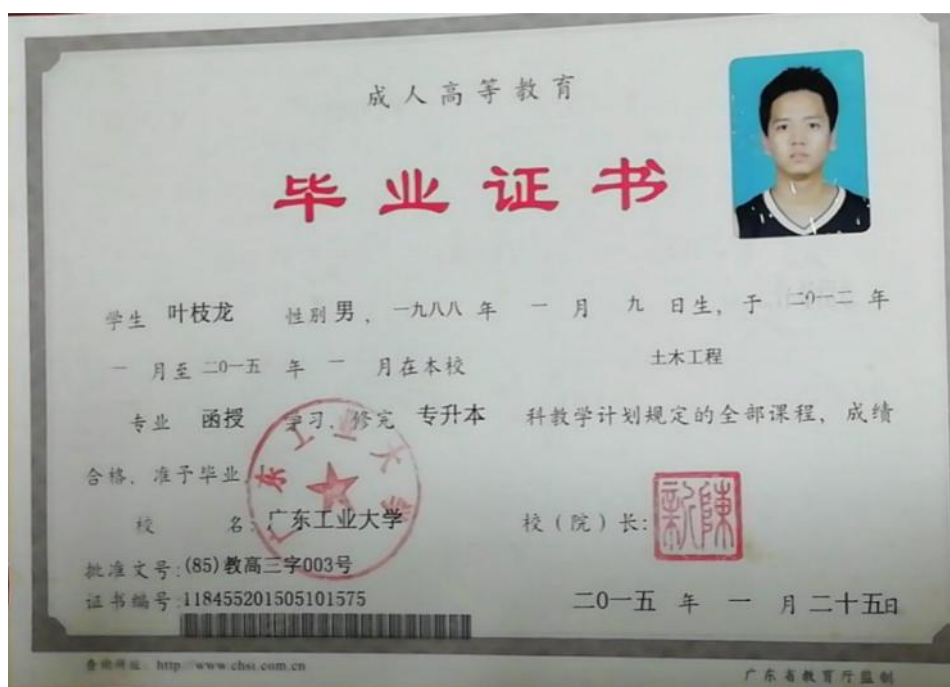 成人高等教育
毕业证书
学生 叶枝龙 性别 男 , 一九八八 年 一 月 九 日生, 于 二0一二 年
一 月至 二0一五 年 一 月在本校 土木工程
专业 函授 学习, 修完 专升本 科教学计划规定的全部课程, 成绩
合格, 准予毕业
校 名: 广东工业大学 校(院)长: 陈新
广东工业大学
批准文号:(85)教高三字003号
证书编号:118455201505101575 二0一五 年 一 月 二十五日
查询网址: http://www.chsi.com.cn 广东省教育厅监制